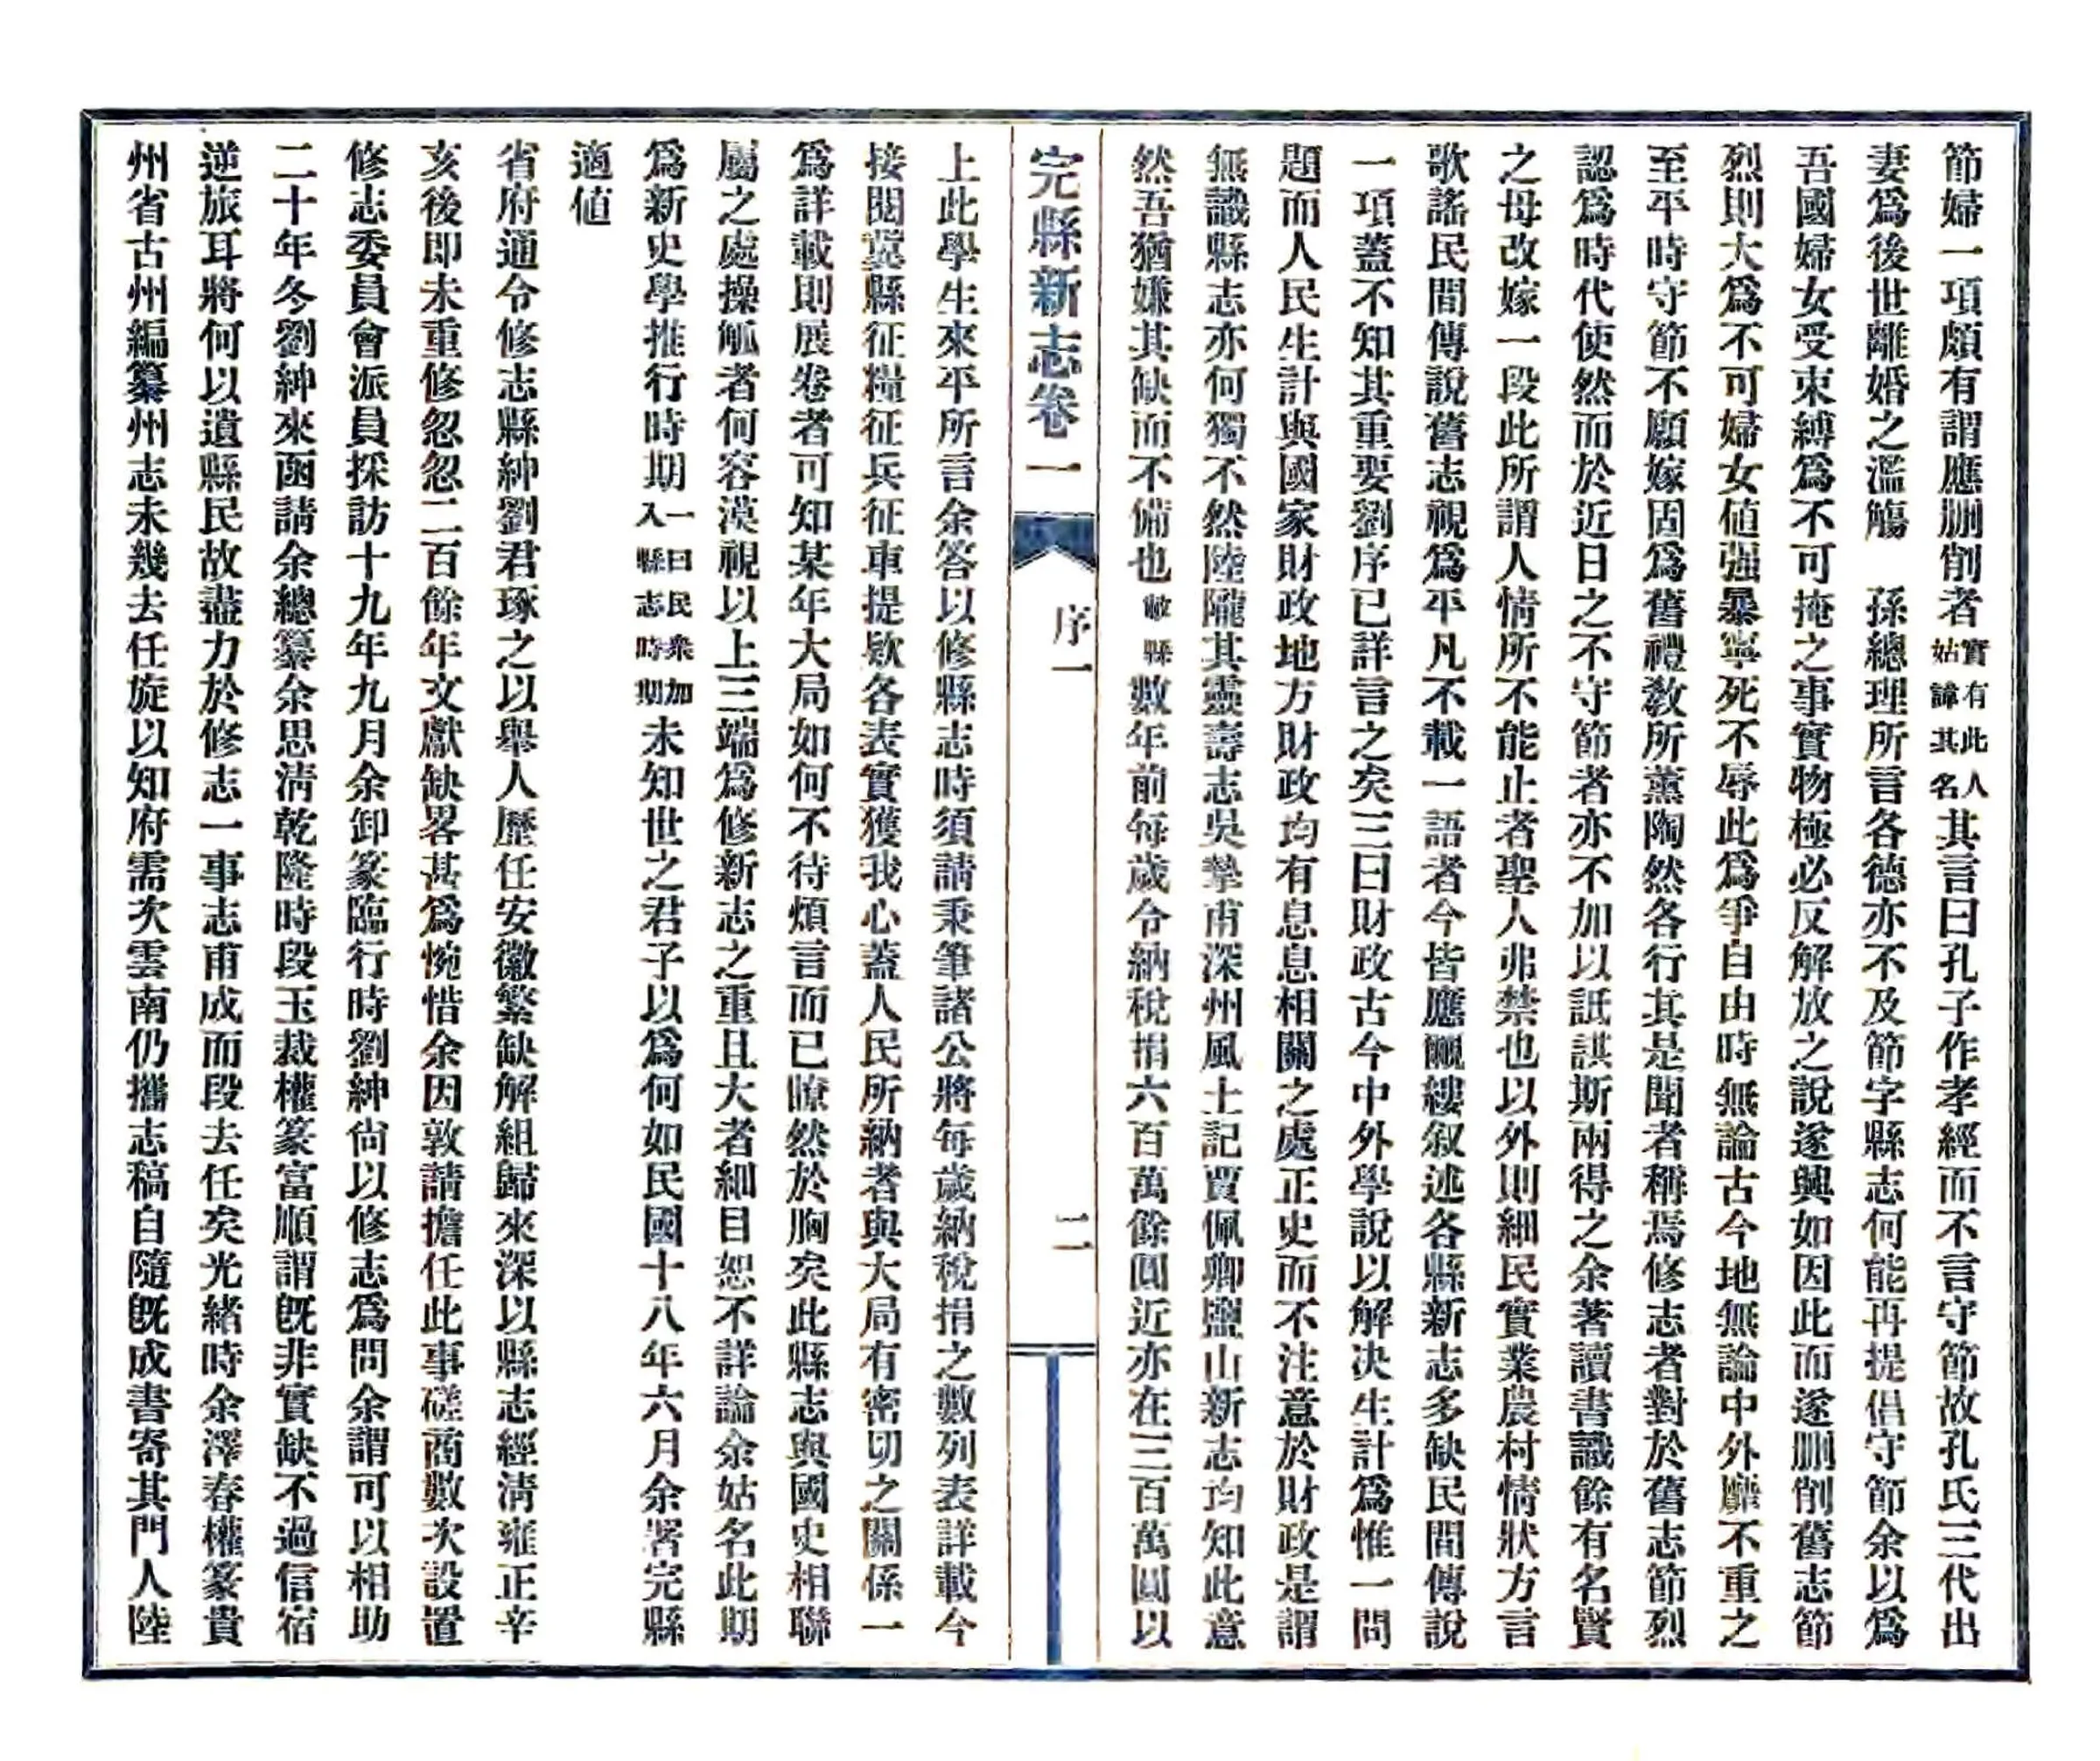 節婦一項頗有謂應刪削者實有此人姑諱其名其言曰孔子作孝經而不言守節故孔氏三代出
妻爲後世離婚之濫觴　孫總理所言各德亦不及節字縣志何能再提倡守節余以爲
吾國婦女受束縛爲不可掩之事實物極必反解放之說遂興如因此而遂刪削舊志節
烈則大爲不可婦女値强暴寧死不辱此爲爭自由時無論古今地無論中外靡不重之
至平時守節不願嫁固爲舊禮敎所薰陶然各行其是聞者稱焉修志者對於舊志節烈
認爲時代使然而於近日之不守節者亦不加以詆諆斯兩得之余著讀書識餘有名賢
之母改嫁一段此所謂人情所不能止者聖人弗禁也以外則細民實業農村情狀方言
歌謠民間傳說舊志視爲平凡不載一語者今皆應覼縷叙述各縣新志多缺民間傳說
一項蓋不知其重要劉序已詳言之矣三曰財政古今中外學說以解决生計爲惟一問
題而人民生計與國家財政地方財政均有息息相關之處正史而不注意於財政是謂
無識縣志亦何獨不然陸隴其靈壽志吳摯甫深州風土記賈佩卿鹽山新志均知此意
然吾猶嫌其缺而不備也敝縣數年前每歲令納稅捐六百萬餘圓近亦在三百萬圓以
完縣新志卷一　序一　二
上此學生來平所言余答以修縣志時須請秉筆諸公將每歲納稅捐之數列表詳載今
接閱冀縣征糧征兵征車提欵各表實獲我心蓋人民所納者與大局有密切之關係一
爲詳載則展卷者可知某年大局如何不待煩言而已瞭然於胸矣此縣志與國史相聯
屬之處操觚者何容漠視以上三端爲修新志之重且大者細目恕不詳論余姑名此期
爲新史學推行時期一曰民衆加入縣志時期未知世之君子以爲何如民國十八年六月余署完縣
適値
省府通令修志縣紳劉君琢之以舉人歷任安徽繁缺解組歸來深以縣志經清雍正辛
亥後即未重修忽忽二百餘年文獻缺畧甚爲惋惜余因敦請擔任此事磋商數次設置
修志委員會派員採訪十九年九月余卸篆臨行時劉紳尙以修志爲問余謂可以相助
二十年冬劉紳來函請余總纂余思清乾隆時段玉裁權篆富順謂旣非實缺不過信宿
逆旅耳將何以遺縣民故盡力於修志一事志甫成而段去任矣光緒時余澤春權篆貴
州省古州編纂州志未幾去任旋以知府需次雲南仍攜志稿自隨旣成書寄其門人陸